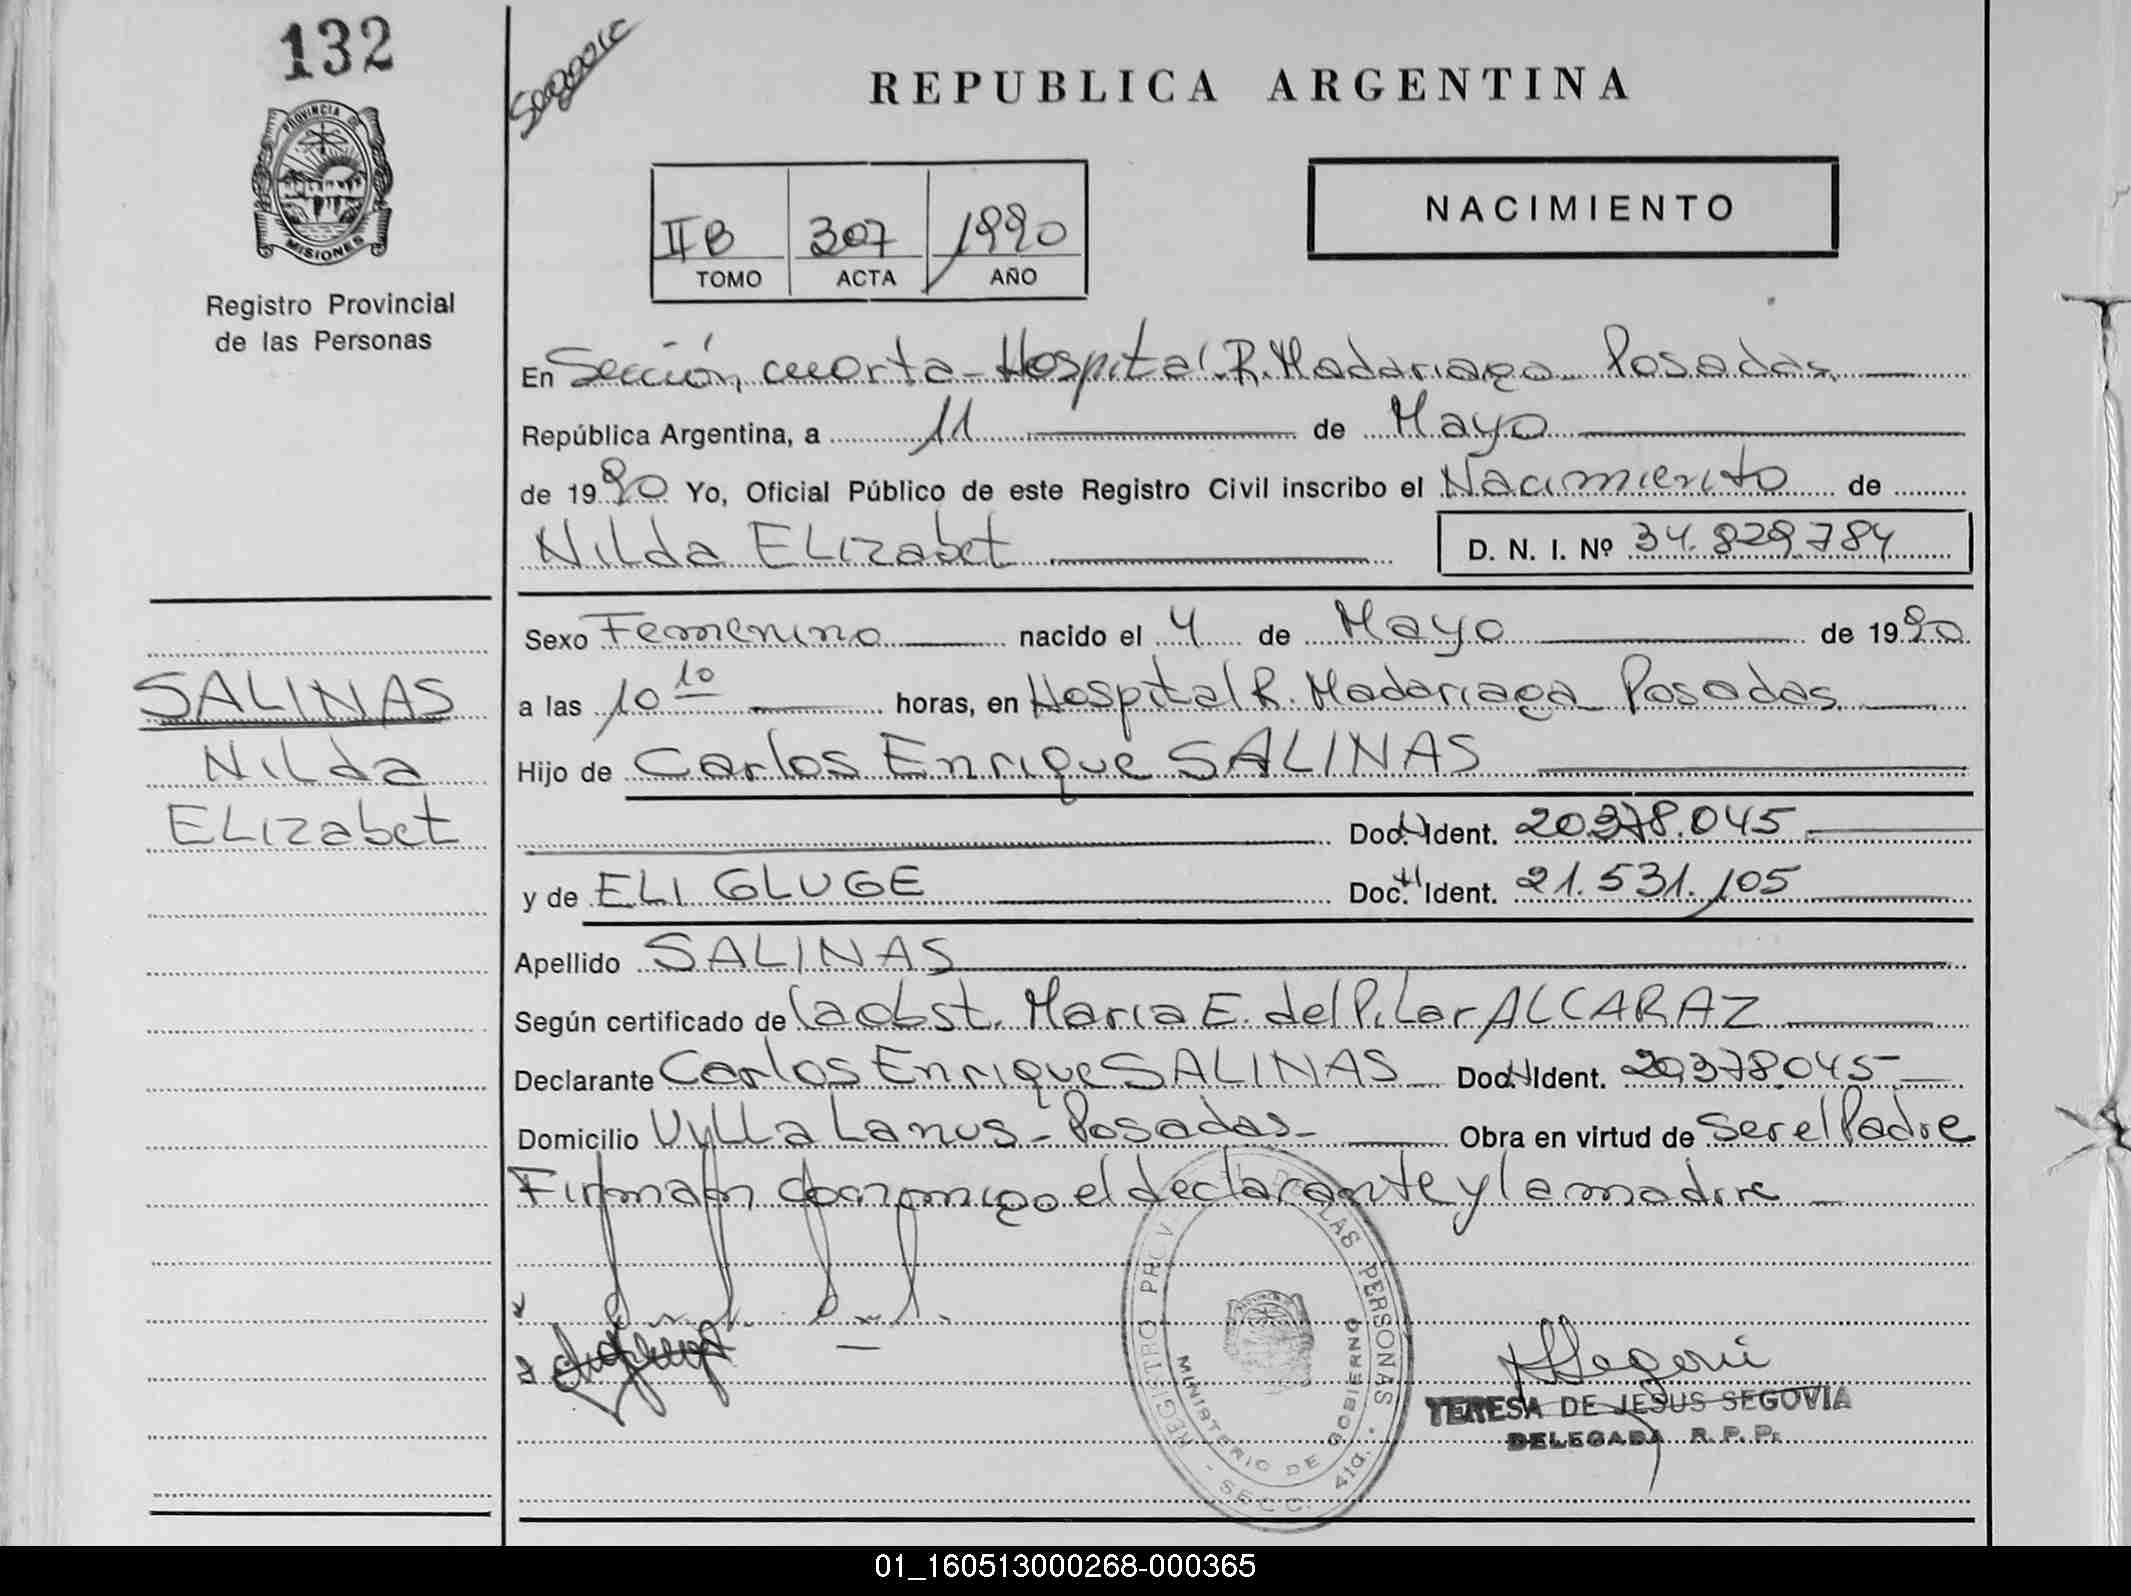 132
PROVINCIA DE
MISIONES
Registro Provincial
de las Personas
REPUBLICA ARGENTINA
NACIMIENTO
II B 307 1990
TOMO ACTA AÑO
En Sección cuarta - Hospital R. Madariaga Posadas
República Argentina, a 11 de Mayo
de 1990 Yo, Oficial Público de este Registro Civil inscribo el Nacimiento de
Nilda ELizabet D. N. I. Nº 34.829.784
Sexo Femenino nacido el 4 de Mayo de 1990
a las 10 10 horas, en Hospital R. Madariaga Posadas
Hijo de Carlos Enrique SALINAS
Doc. Ident. 20.378.045
y de ELI GLUGE Doc. Ident. 21.531.105
Apellido SALINAS
Según certificado de la obst. Maria E. del Pilar ALCARAZ
Declarante Carlos Enrique SALINAS Doc. Ident. 20.378.045
Domicilio Vylla Lanus - Posadas - Obra en virtud de Ser el Padre
Firman conmigo el declarante y la madre
SALINAS
Nilda
ELizabet
REGISTRO PROV. DE LAS PERSONAS
MINISTERIO DE GOBIERNO
SECC. 4ta.
TERESA DE JESUS SEGOVIA
DELEGADA R. P. P.
01_160513000268-000365